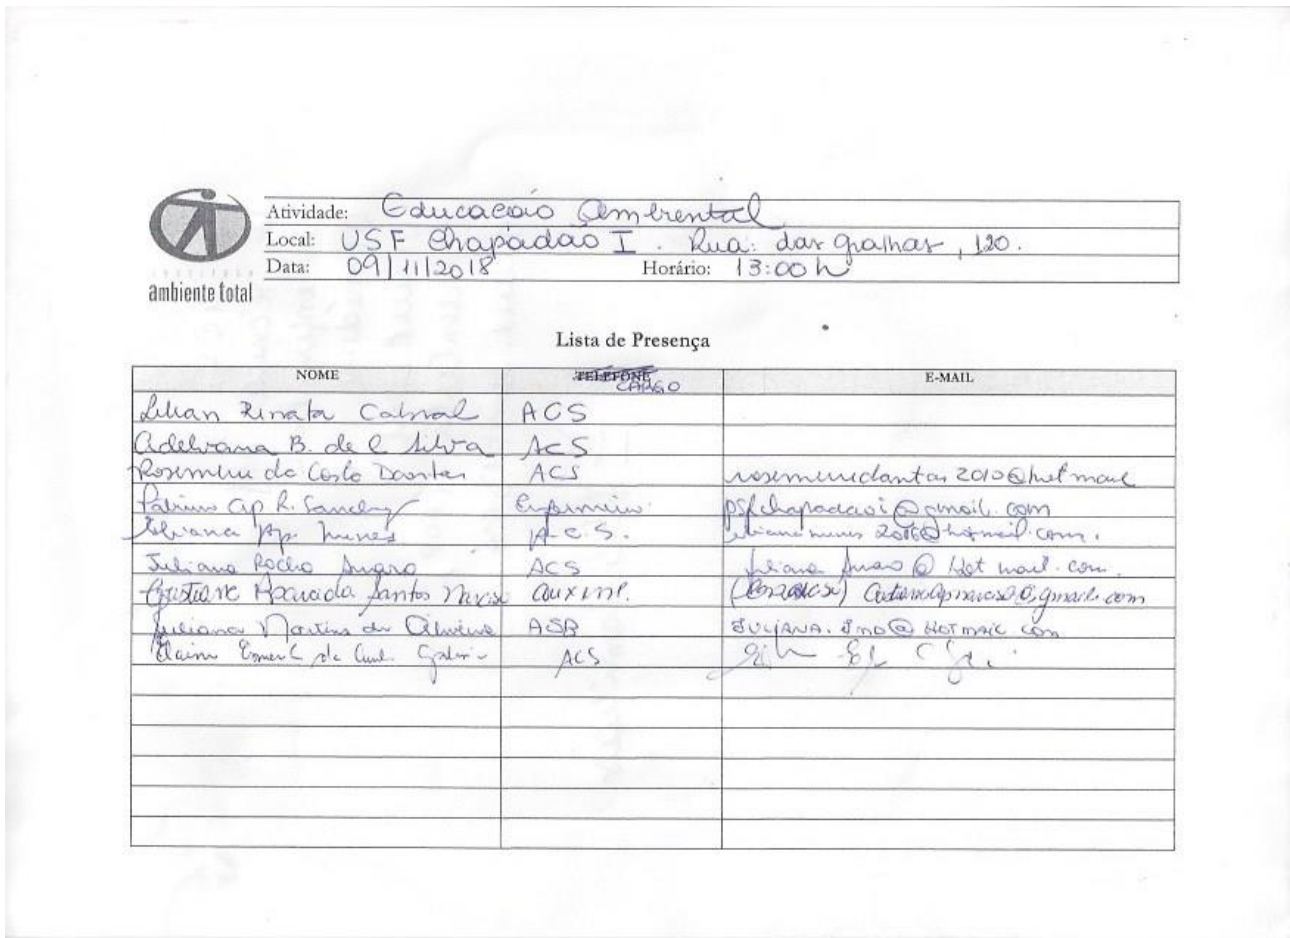 Atividade: Educação Ambiental
Local: USF Chapadão I. Rua: das gralhas, 120.
Data: 09/11/2018 Horário: 13:00 h
ambiente total
Lista de Presença
NOME TELEFONE CARGO E-MAIL
Lilian Renata Cabral ACS
Adelvana B. de C Silva ACS
Rosemeire da Costa Dantas ACS rosemeiredantas2010@hotmail
Ap. R. Sanchez Enfermeiro psfchapadaoi@gmail.com
Silvana Ap. Nunes A.C.S.
Juliana Rocha Amaro ACS juliana Amaro@Hotmail.com.
Cristiane Aparecida Santos aux enf.
Juliana Martins de Oliveira ASB JULIANA.JMO@HOTMAIL.com
ACS